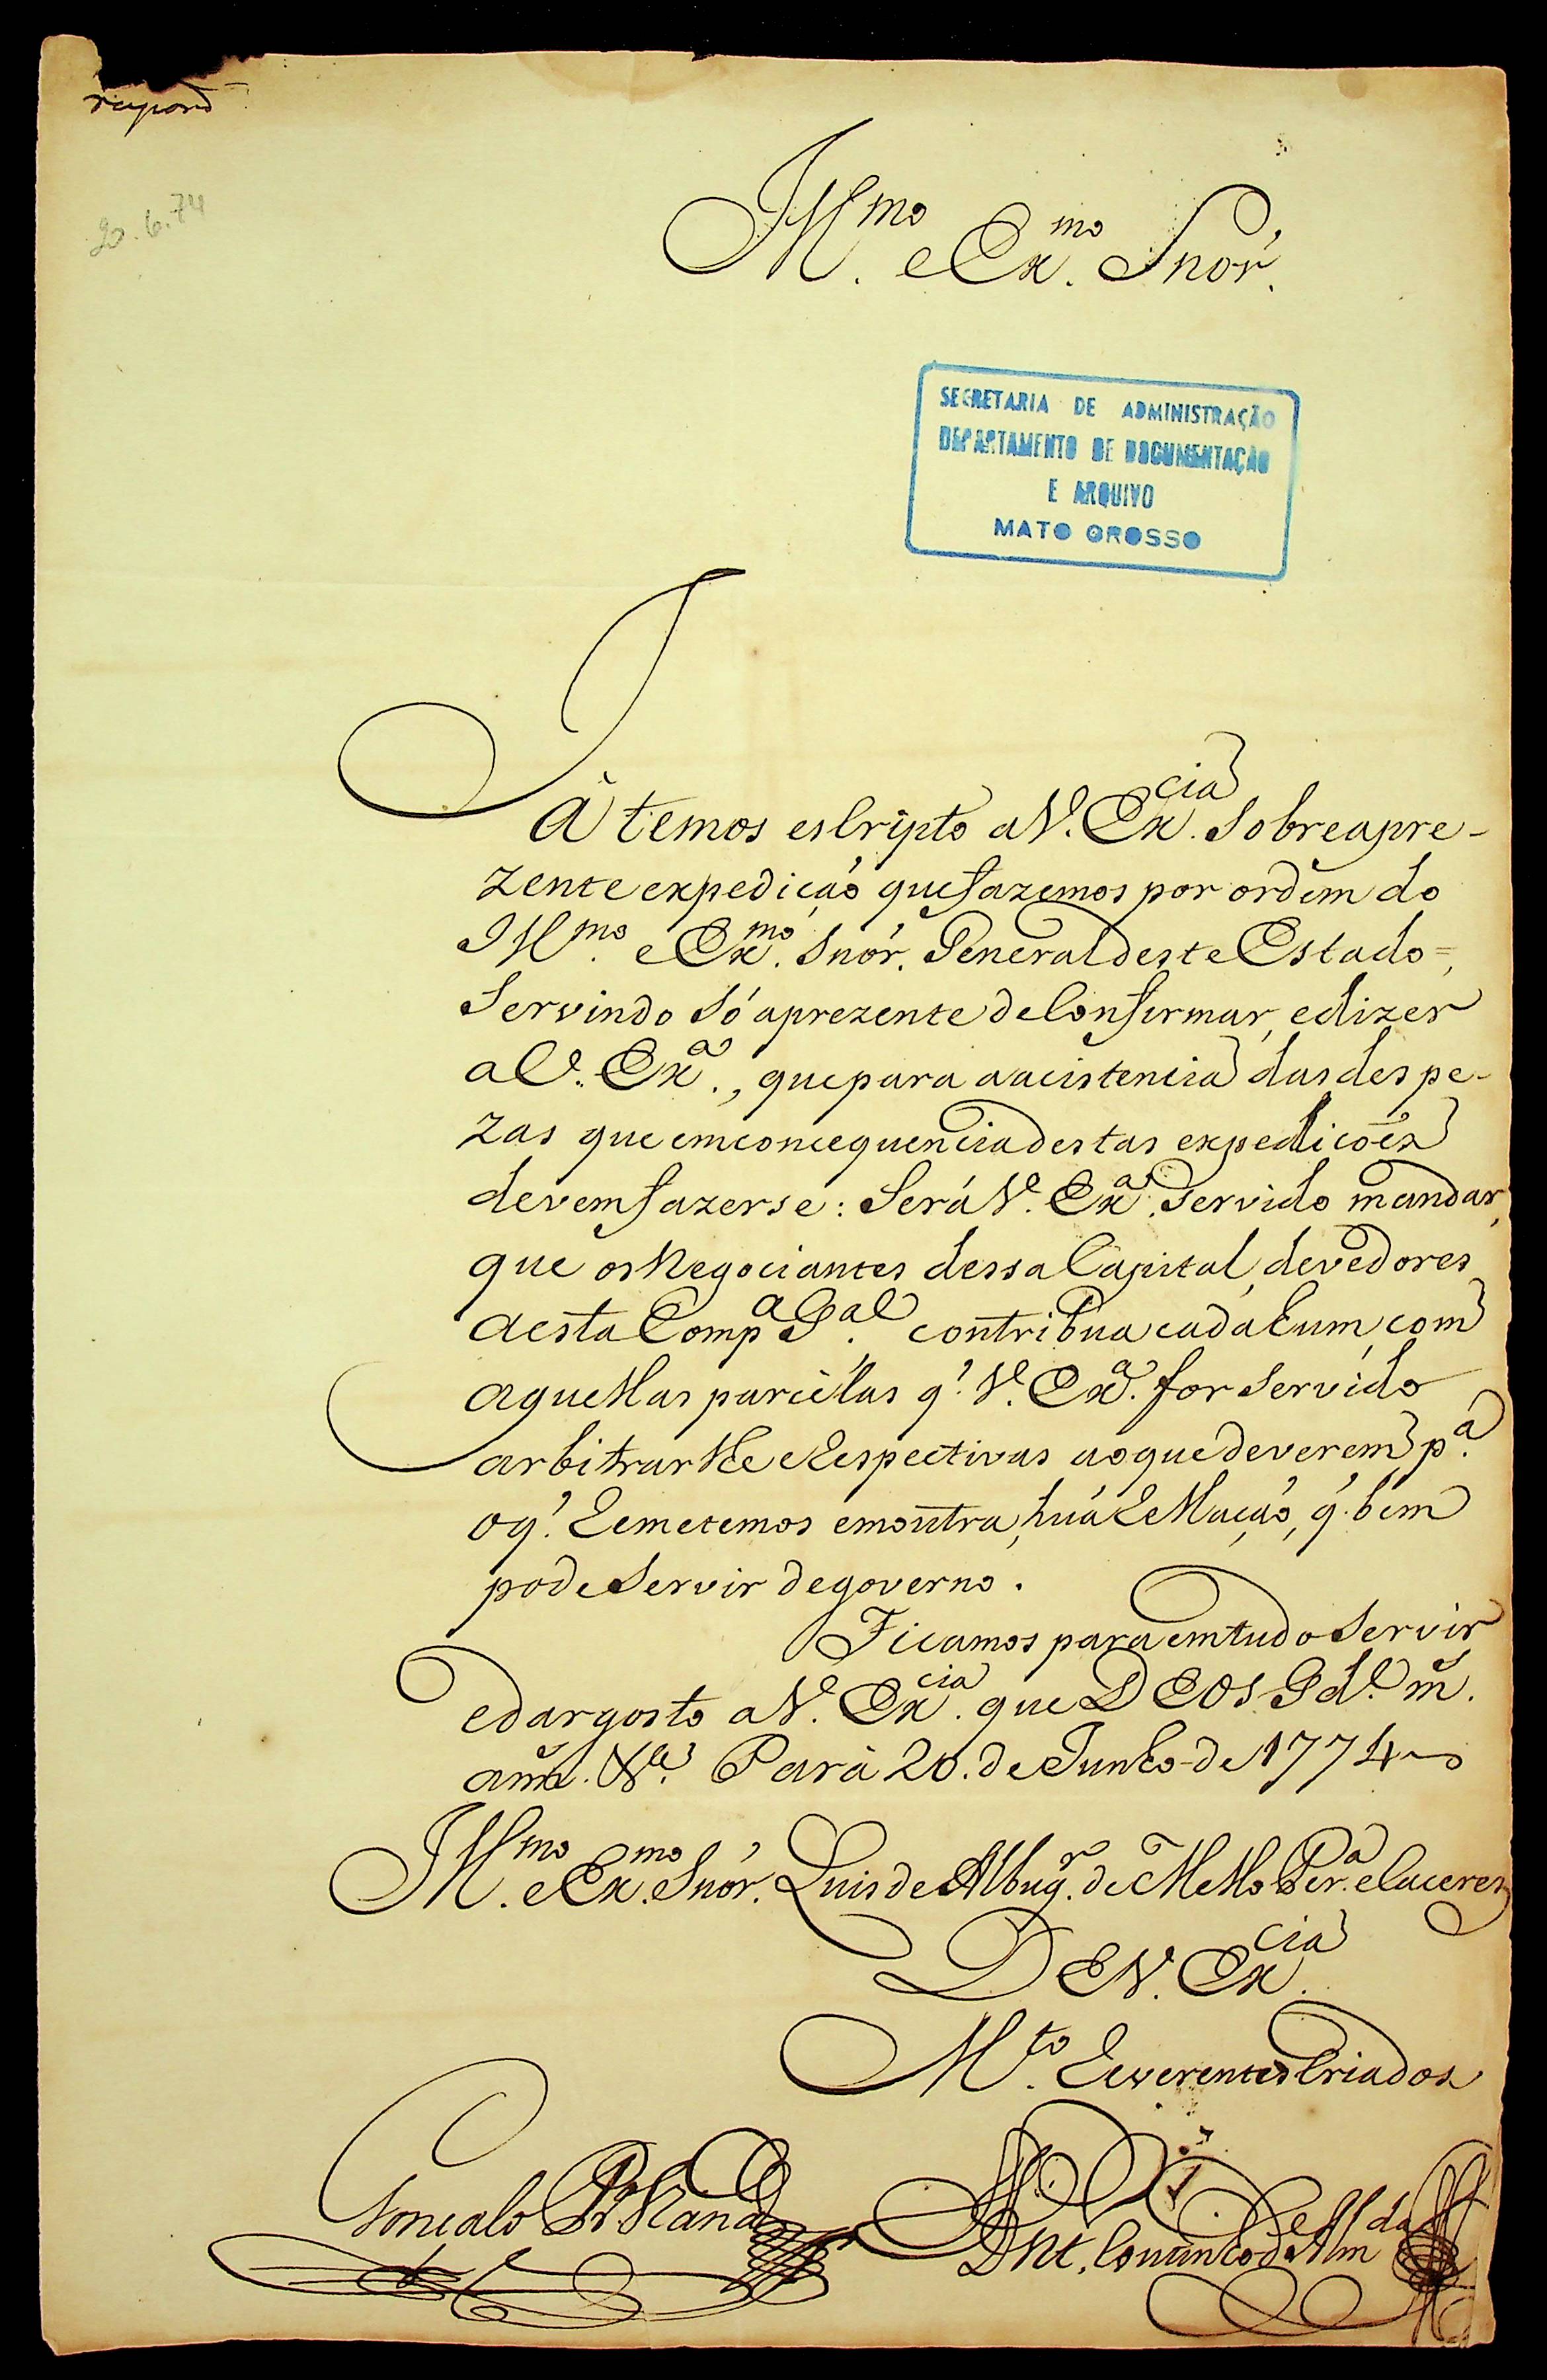 respond
20.6.74
Ill.mo e Ex.mo Snór.
SECRETARIA DE ADMINISTRAÇÃO
DEPARTAMENTO DE DOCUMENTAÇÃO
E ARQUIVO
MATO GROSSO
Já temos escripto a V. Ex.cia Sobre a pre-
zente expedição que fazemos por ordem do
Ill.mo e Ex.mo Snór. General deste Estado=,
Servindo só aprezente de Confirmar, e dizer
a V. Ex.a, que para a acistencia das despe-
zas que em concequencia destas expedicoés
devem fazerse: Será V. Ex.a Servido mandar,
que os Negociantes dessa Capital, devedores
a esta Comp.a G.al contribua cada hum, com
aquellas parcélas q.' V. Ex.a for Servido
arbitrarlhe e Respectivas ao que deverem p.a
o q.' Remetemos em outra, huá Rellação, q.' bem
pode Servir de governo.
Ficamos para em tudo Servir
e dar gosto a V. Ex.cia que DEOS G.de m.s
ann.s Pará 20. de Junho de 1774
Ill.mo e Ex.mo Snór. Luis de Albuq.e de Mello Per.a e Caceres
DE V. Ex.cia
M.to Reverentes Criados
Goncalo Per.a Viana
D. Ant. Couttinho de Alm.da